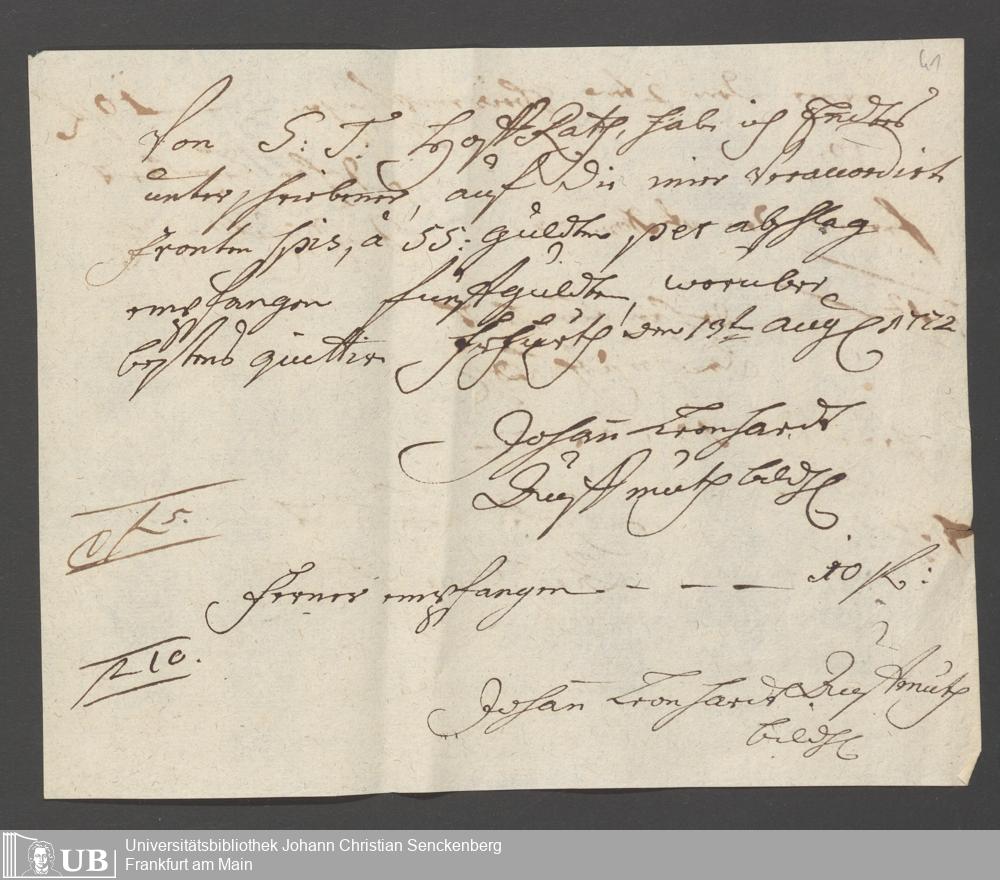 41
Von S: T: HoffRath, hab ich Endes
unterschriebener, auf die mier veraccordirte
fronten spis, a 55: gülden per abschlag
empfangen fünff gülden, worüber
bestens quittire Erfurth den 19t aug 1772
Johann Leonhardt
Rust muth bildh
5.
Ferner empfangen - - - 10 fl:
10.
Johann Leonhardt Rustmuth
bildh
UB
Universitätsbibliothek Johann Christian Senckenberg
Frankfurt am Main